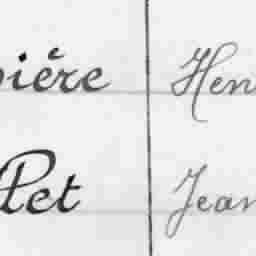 ière Hen
Pet Jean